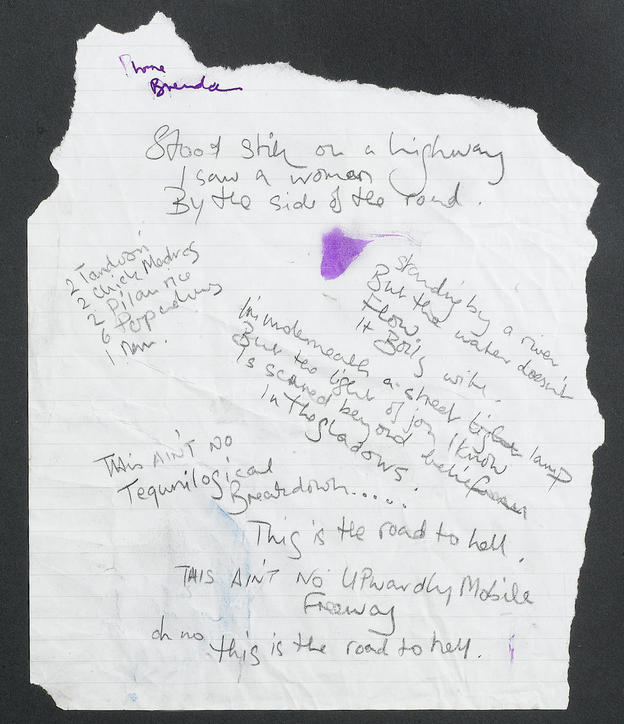 Phone
Brenda
Stood still on a highway
I saw a woman
By the side of the road.
2 Tandoori
2 Chick Madras
2 Pilau rice
6 Popendums
1 Nan.
Standing by a river
But the water doesn't
Flow.
It Boils with.
I'm underneath a street light lamp
But the light of joy I Know
Is scared beyond belief
In the Shadows.
THis AIN'T NO
Tequnilogical
Breakdown.....
This is the road to hell.
THIS AIN'T NO UPwardly Mobile
Freeway
oh no this is the road to hell.